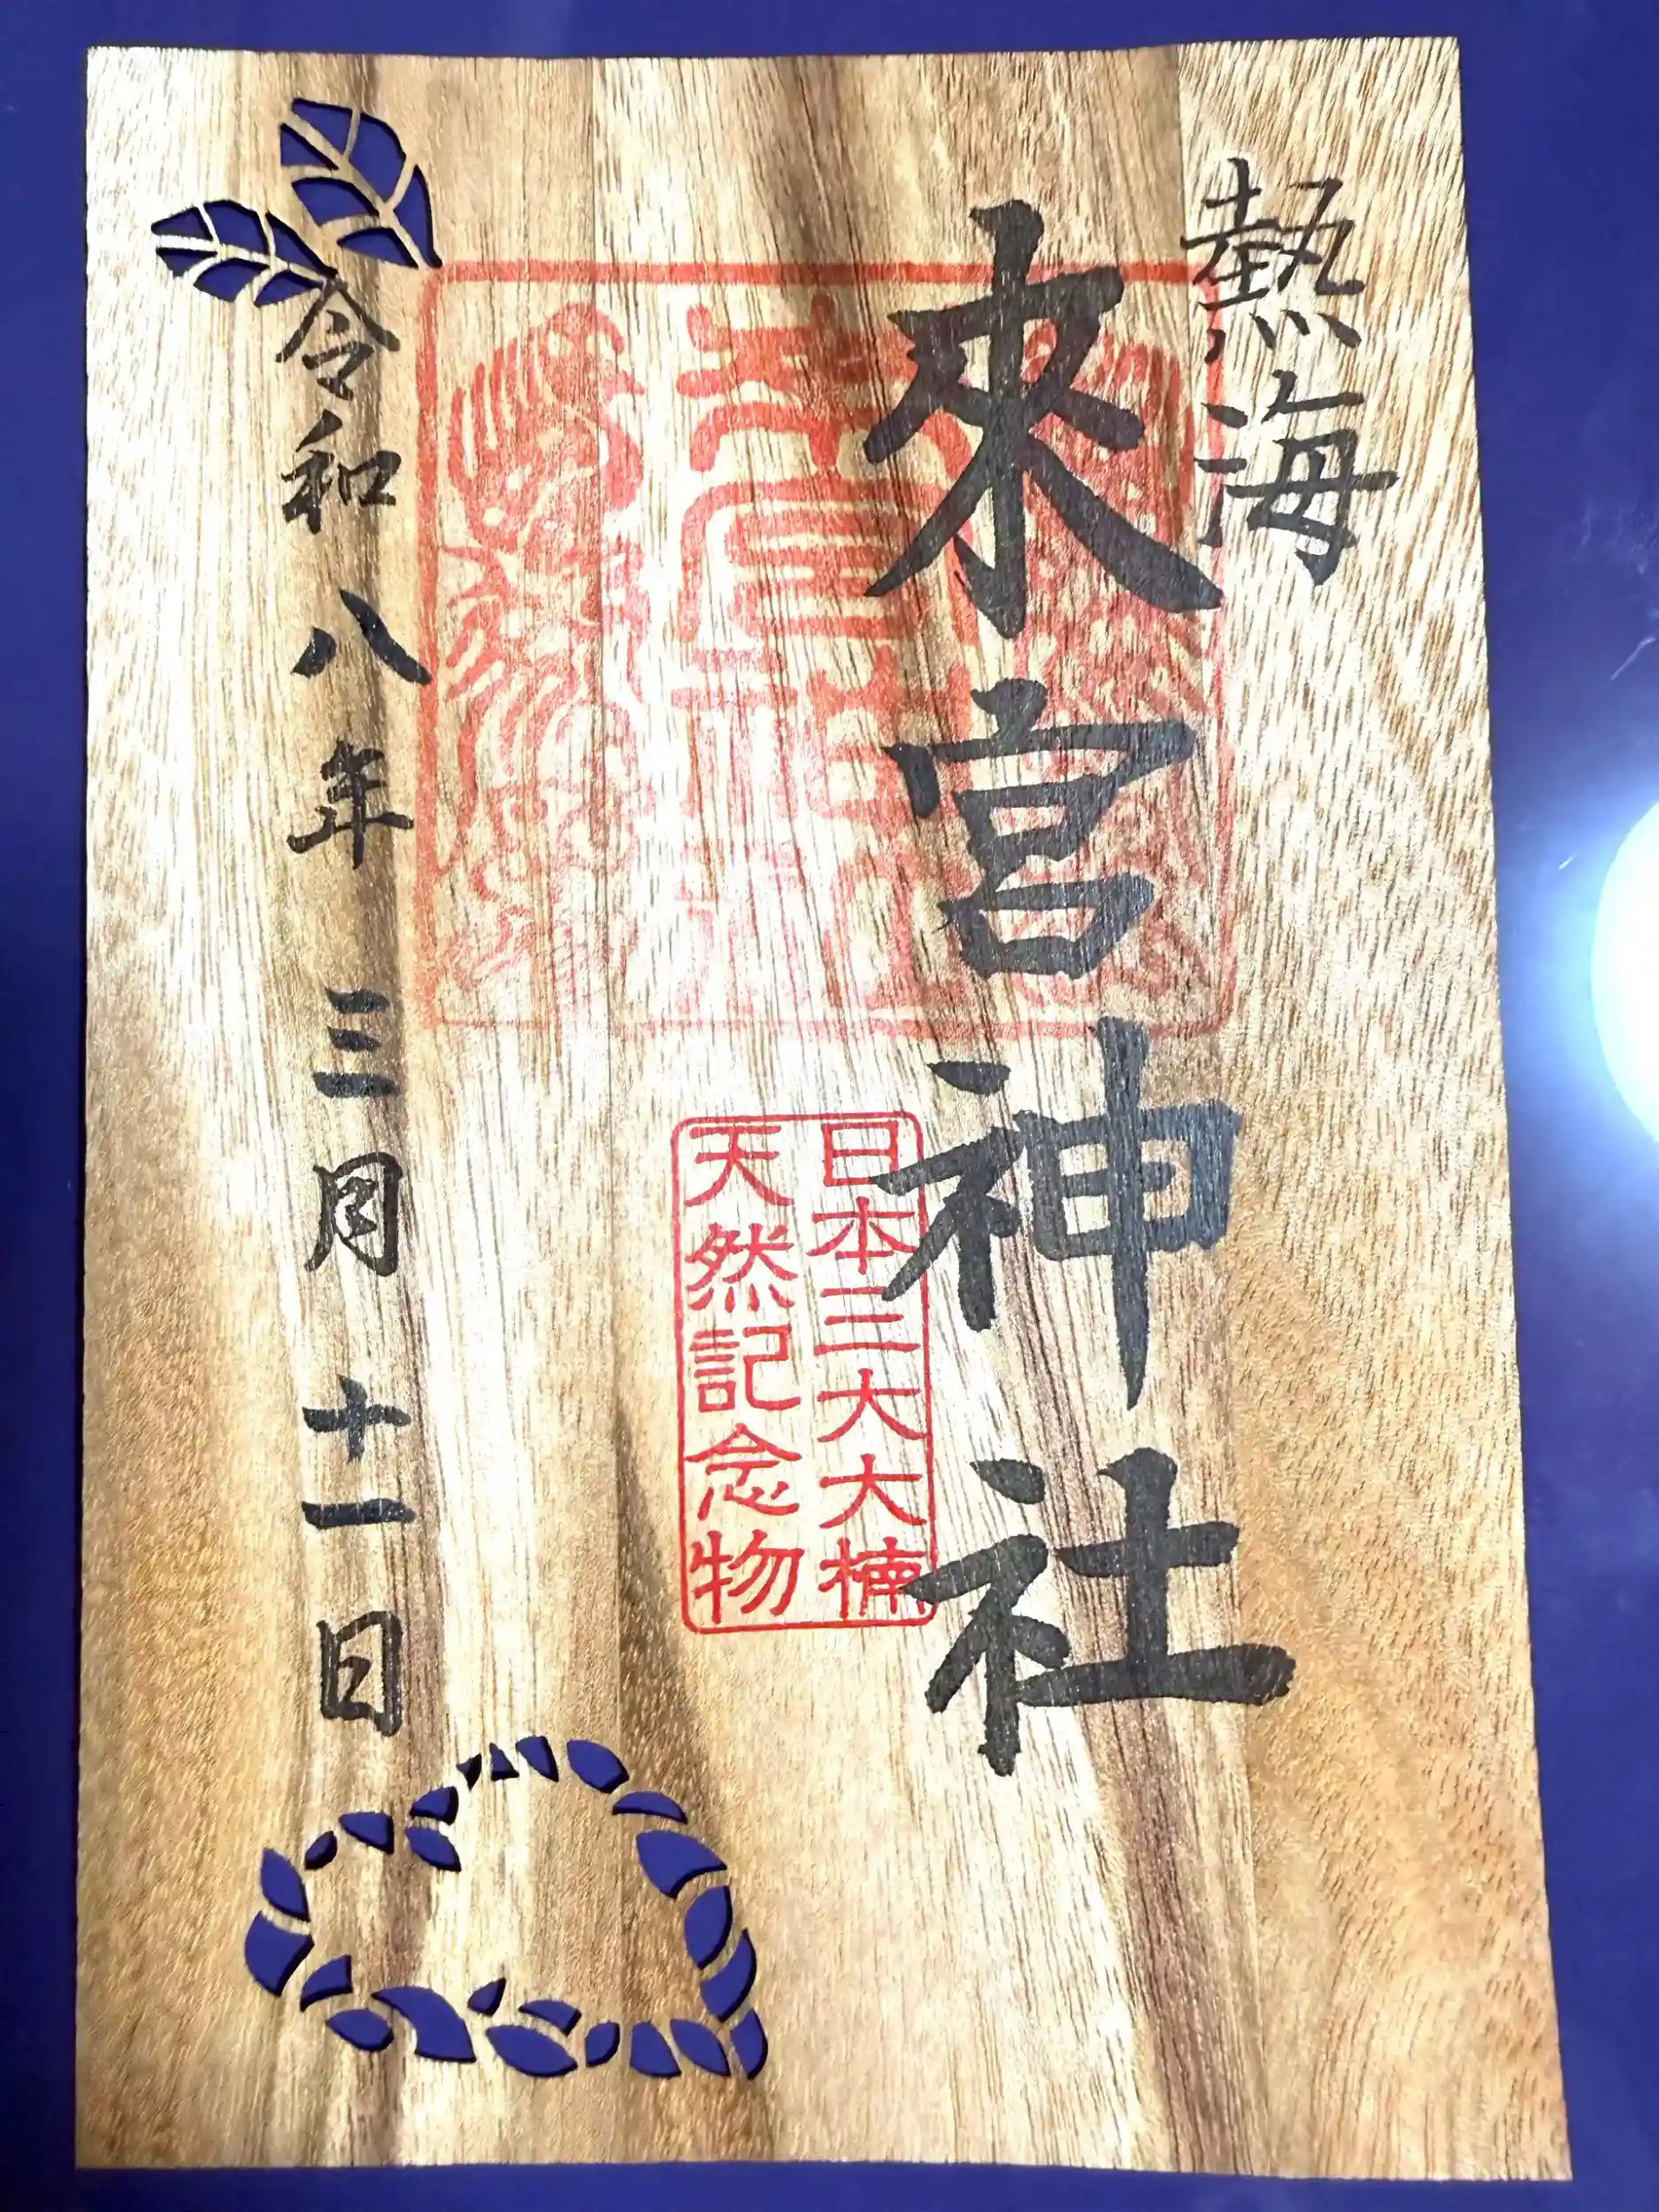 熱海
來宮神社
日本三大大楠
天然記念物
令和八年三月十一日